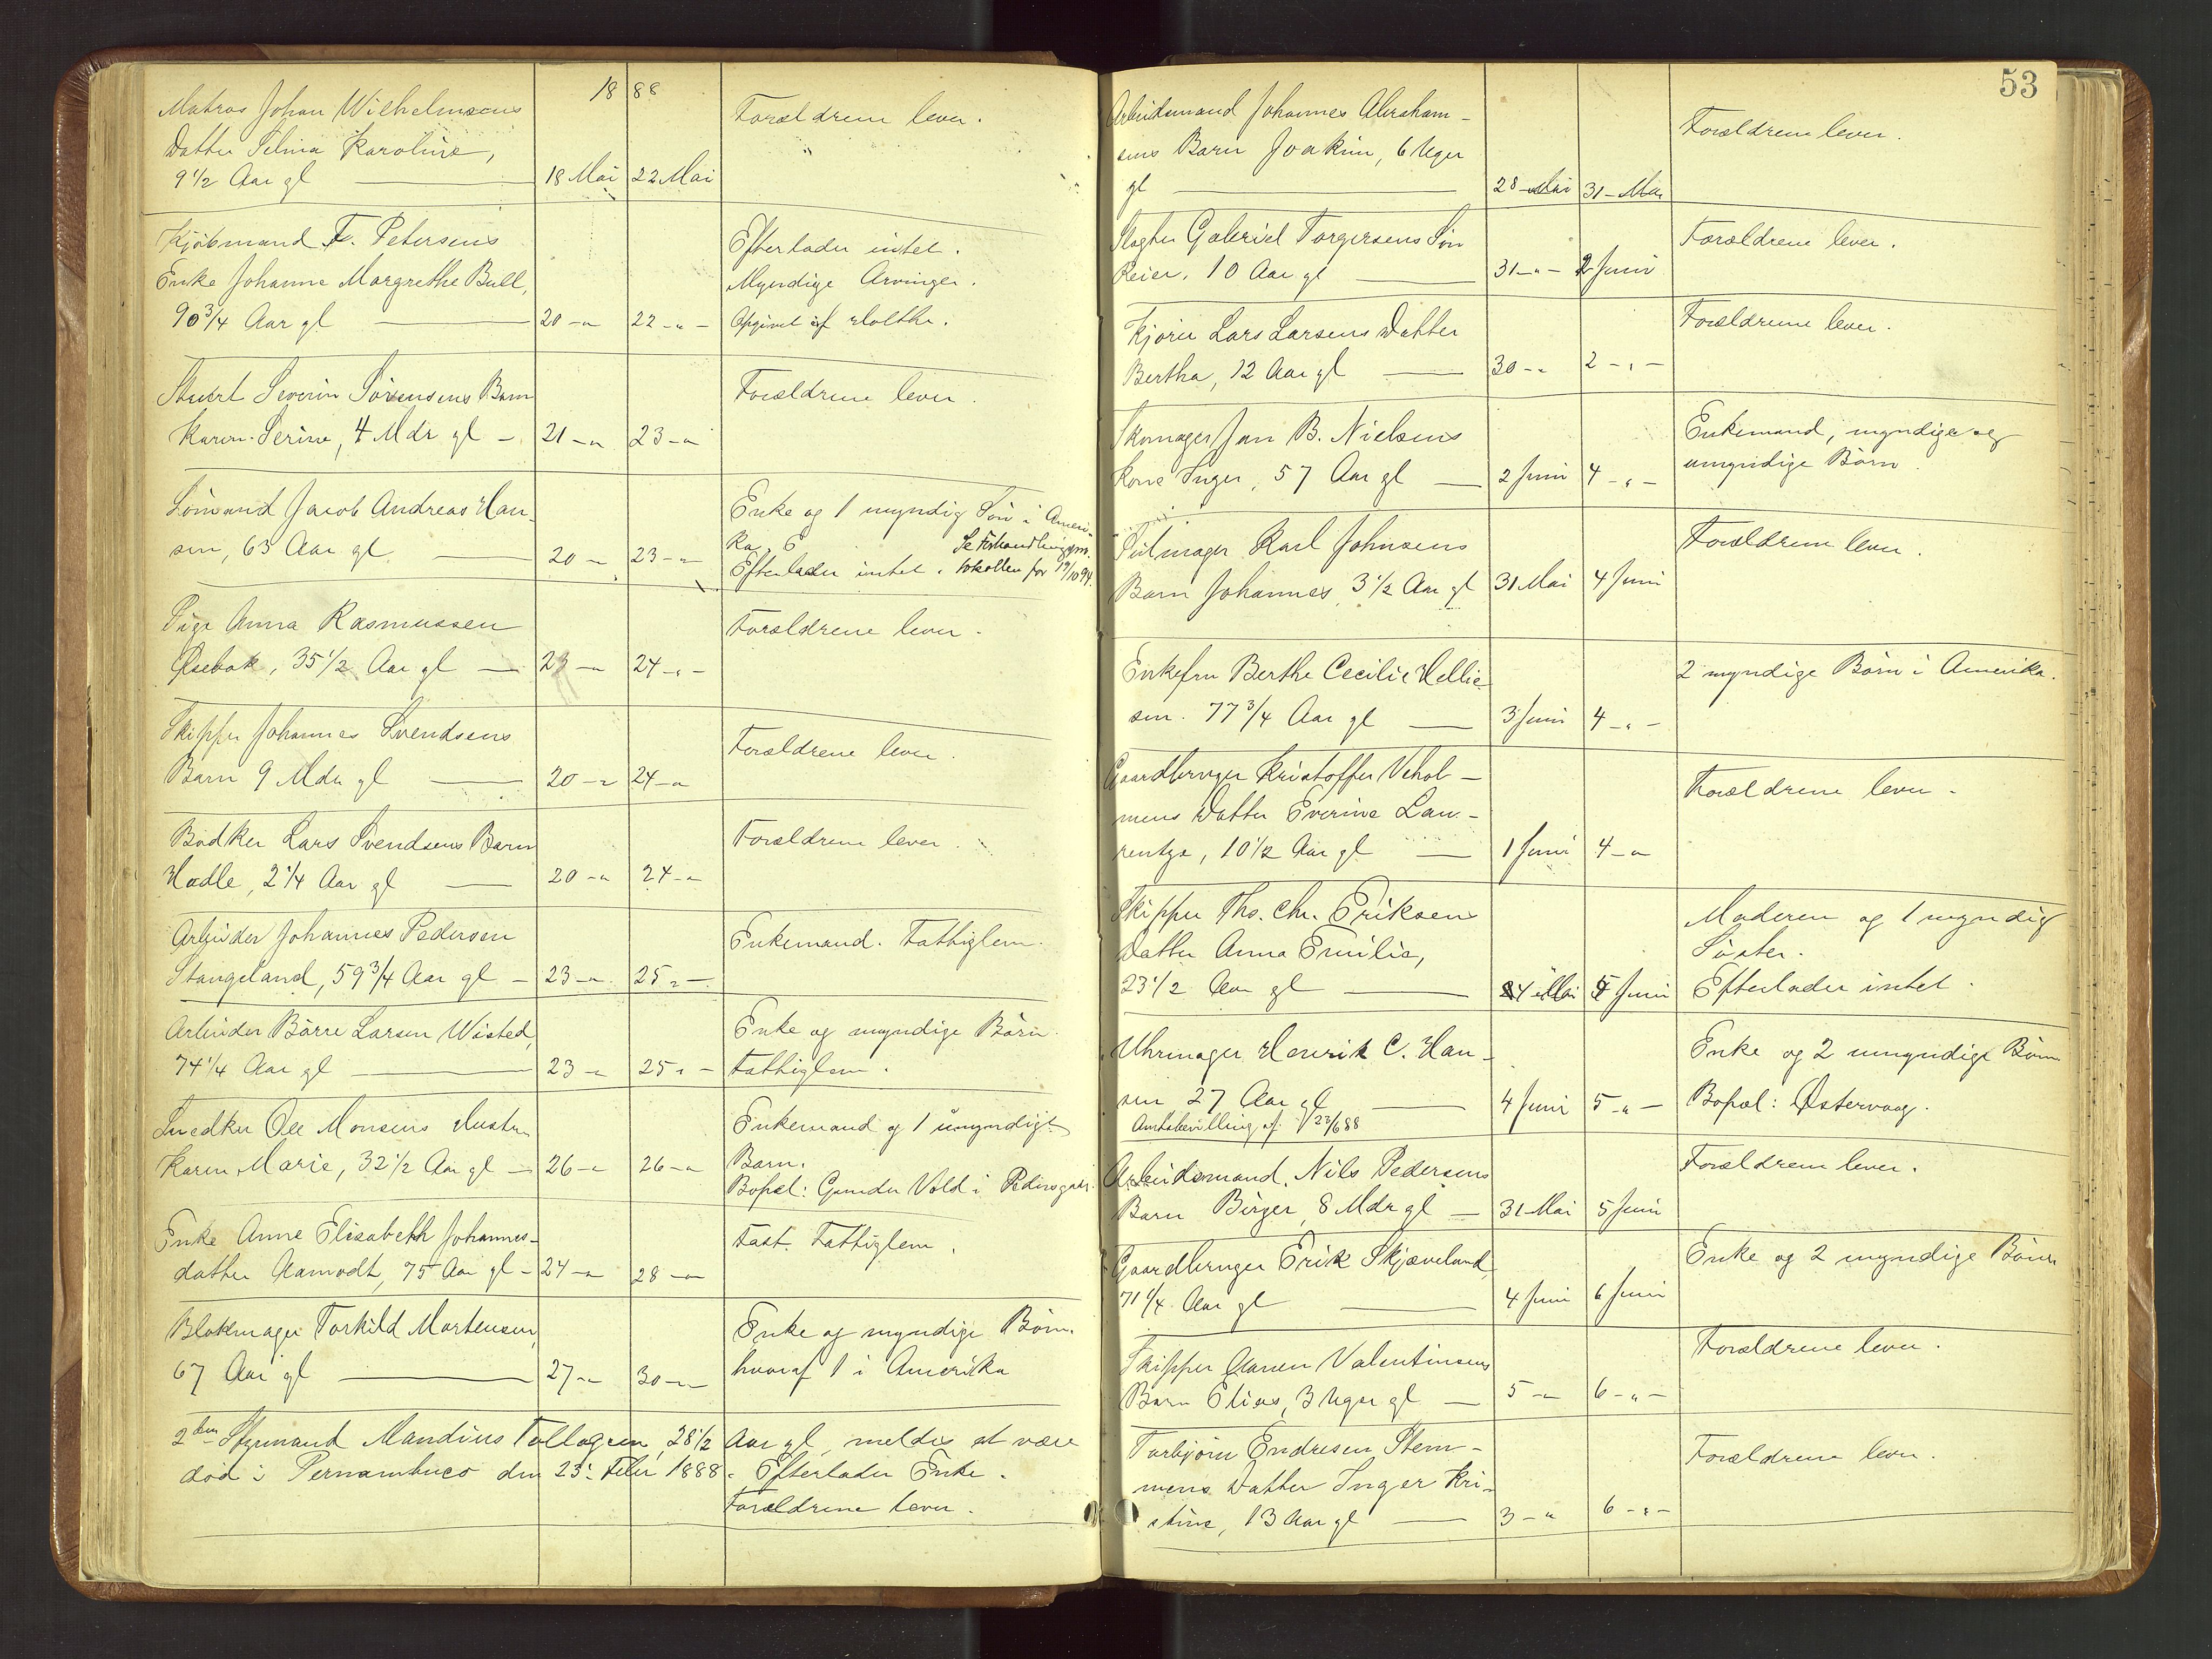 18 88
Matros Johan Wilhelmsens
Datter Selma Karoline,
9 1/2 Aar gl — 18 Mai 22 Mai
Forældrene lever.
Kjøbmand F. Petersens
Enke Johanne Margrethe Bull,
90 3/4 Aar gl — 20 -"- 22 -"-
Efterlader intet.
Myndige Arvinger.
Opgivet af Holthe.
Stuert Severin Sörensens Barn
Karen Serine, 4 Mdr gl - 21 -"- 23 -"-
Forældrene lever.
Sömand Jacob Andreas Han-
sen, 63 Aar gl — 20 -"- 23 -"-
Enke og 1 myndig Sön i Ameri-
ka.
Efterlader intet.
Se Forhandlingspro-
tokollen for 19/10 94.
Pige Anna Rasmussen
Øsebak, 35 1/2 Aar gl — 23 -"- 24 -"-
Forældrene lever.
Skipper Johannes Svendsens
Barn 9 Mdr gl — 20 -"- 24 -"-
Forældrene lever.
Bödker Lars Svendsens Barn
Hadle, 2 1/4 Aar gl — 20 -"- 24 -"-
Forældrene lever.
Arbeider Johannes Pedersen
Stangeland, 59 3/4 Aar gl - 23 -"- 25 -"-
Enkemand. Fattiglem.
Arbeider Börre Larsen Wisted,
74 1/4 Aar gl — 23 -"- 25 -"-
Enke og myndige Börn.
Fattiglem.
Snedker Ole Monsens Hustru
Karen Marie, 32 1/2 Aar gl — 26 -"- 26 -"-
Enkemand og 1 umyndigt
Barn.
Bopæl: Gunder Vold i Pedersgad.
Enke Anne Elisabeth Johannes-
datter Aamodt, 75 Aar gl - 24 -"- 28 -"-
Fast Fattiglem.
Blokmager Torkild Mortensen,
67 Aar gl — 27 -"- 30 -"-
Enke og myndige Börn.
hvoraf 1 i Amerika
2den Styrmand Mandius Tollagsen, 28 1/2 Aar gl, meldes at være
död i Pernambuco den 23. Febr 1888. Efterlader Enke.
Forældrene lever.
53
Arbeidsmand Johannes Abraham-
sens Barn Joakim, 6 Uger
gl — 28 Mai 31 - Mai
Forældrene lever.
Slagter Gabriel Torgersens Sön
Reier, 10 Aar gl — 31 -"- 2 Juni
Forældrene lever.
Kjörer Lars Larsens Datter
Bertha, 12 Aar gl — 30 -"- 2 -"-
Forældrene lever.
Skomager Jan B. Nielsens
Kone Inger, 57 Aar gl — 2 Juni 4 -"-
Enkemand, myndige og
umyndige Börn.
Seilmager Karl Johnsens
Barn Johannes, 3 1/2 Aar gl 31 Mai 4 Juni
Forældrene lever.
Enkefru Berthe Cecilie Hellie-
sen. 77 3/4 Aar gl — 3 Juni 4 -"-
2 myndige Börn i Amerika.
Gaardbruger Kristoffer Vehol-
mens Datter Everine Lau-
rentze, 10 1/2 Aar gl — 1 Juni 4 -"-
Forældrene lever.
Skipper Ths. Chr. Eriksens
Datter Anna Emilie,
23 1/2 Aar gl — 24 Mai 5 Juni
Moderen og 1 myndig
Söster.
Efterlader intet.
Uhrmager Henrik C. Han-
sen 27 Aar gl — 4 Juni 5 -"-
Amtsbevilling af 23/6 88
Enke og 2 umyndige Börn
Bopæl: Østervaag.
Arbeidsmand Nils Pedersens
Barn Birger, 8 Mdr gl — 31 Mai 5 Juni
Forældrene lever.
Gaardbruger Erik Skjæveland,
71 1/4 Aar gl — 4 Juni 6 Juni
Enke og 2 myndige Börn
Skipper Aanen Valentinsens
Barn Elias, 3 Uger gl — 5 -"- 6 -"-
Forældrene lever.
Torbjörn Endresen Stem-
mens Datter Inger Kri-
stine, 13 Aar gl — 3 -"- 6 -"-
Forældrene lever.